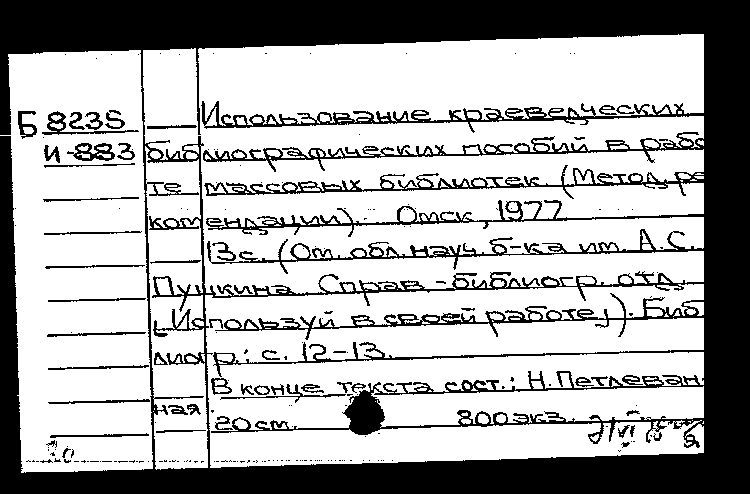 Б 8235 Использование краеведческих
И-883 библиографических пособий в рабо
те массовых библиотек. (Метод. ре
комендации). Омск, 1977
13с. (Ом. обл. науч. б-ка им. А.С.
Пушкина. Справ.-библиогр. отд.
"Используй в своей работе"). Биб
лиогр.: с. 12-13.
В конце текста сост.: Н. Петлеван-
ная.
20 см. 800 экз.